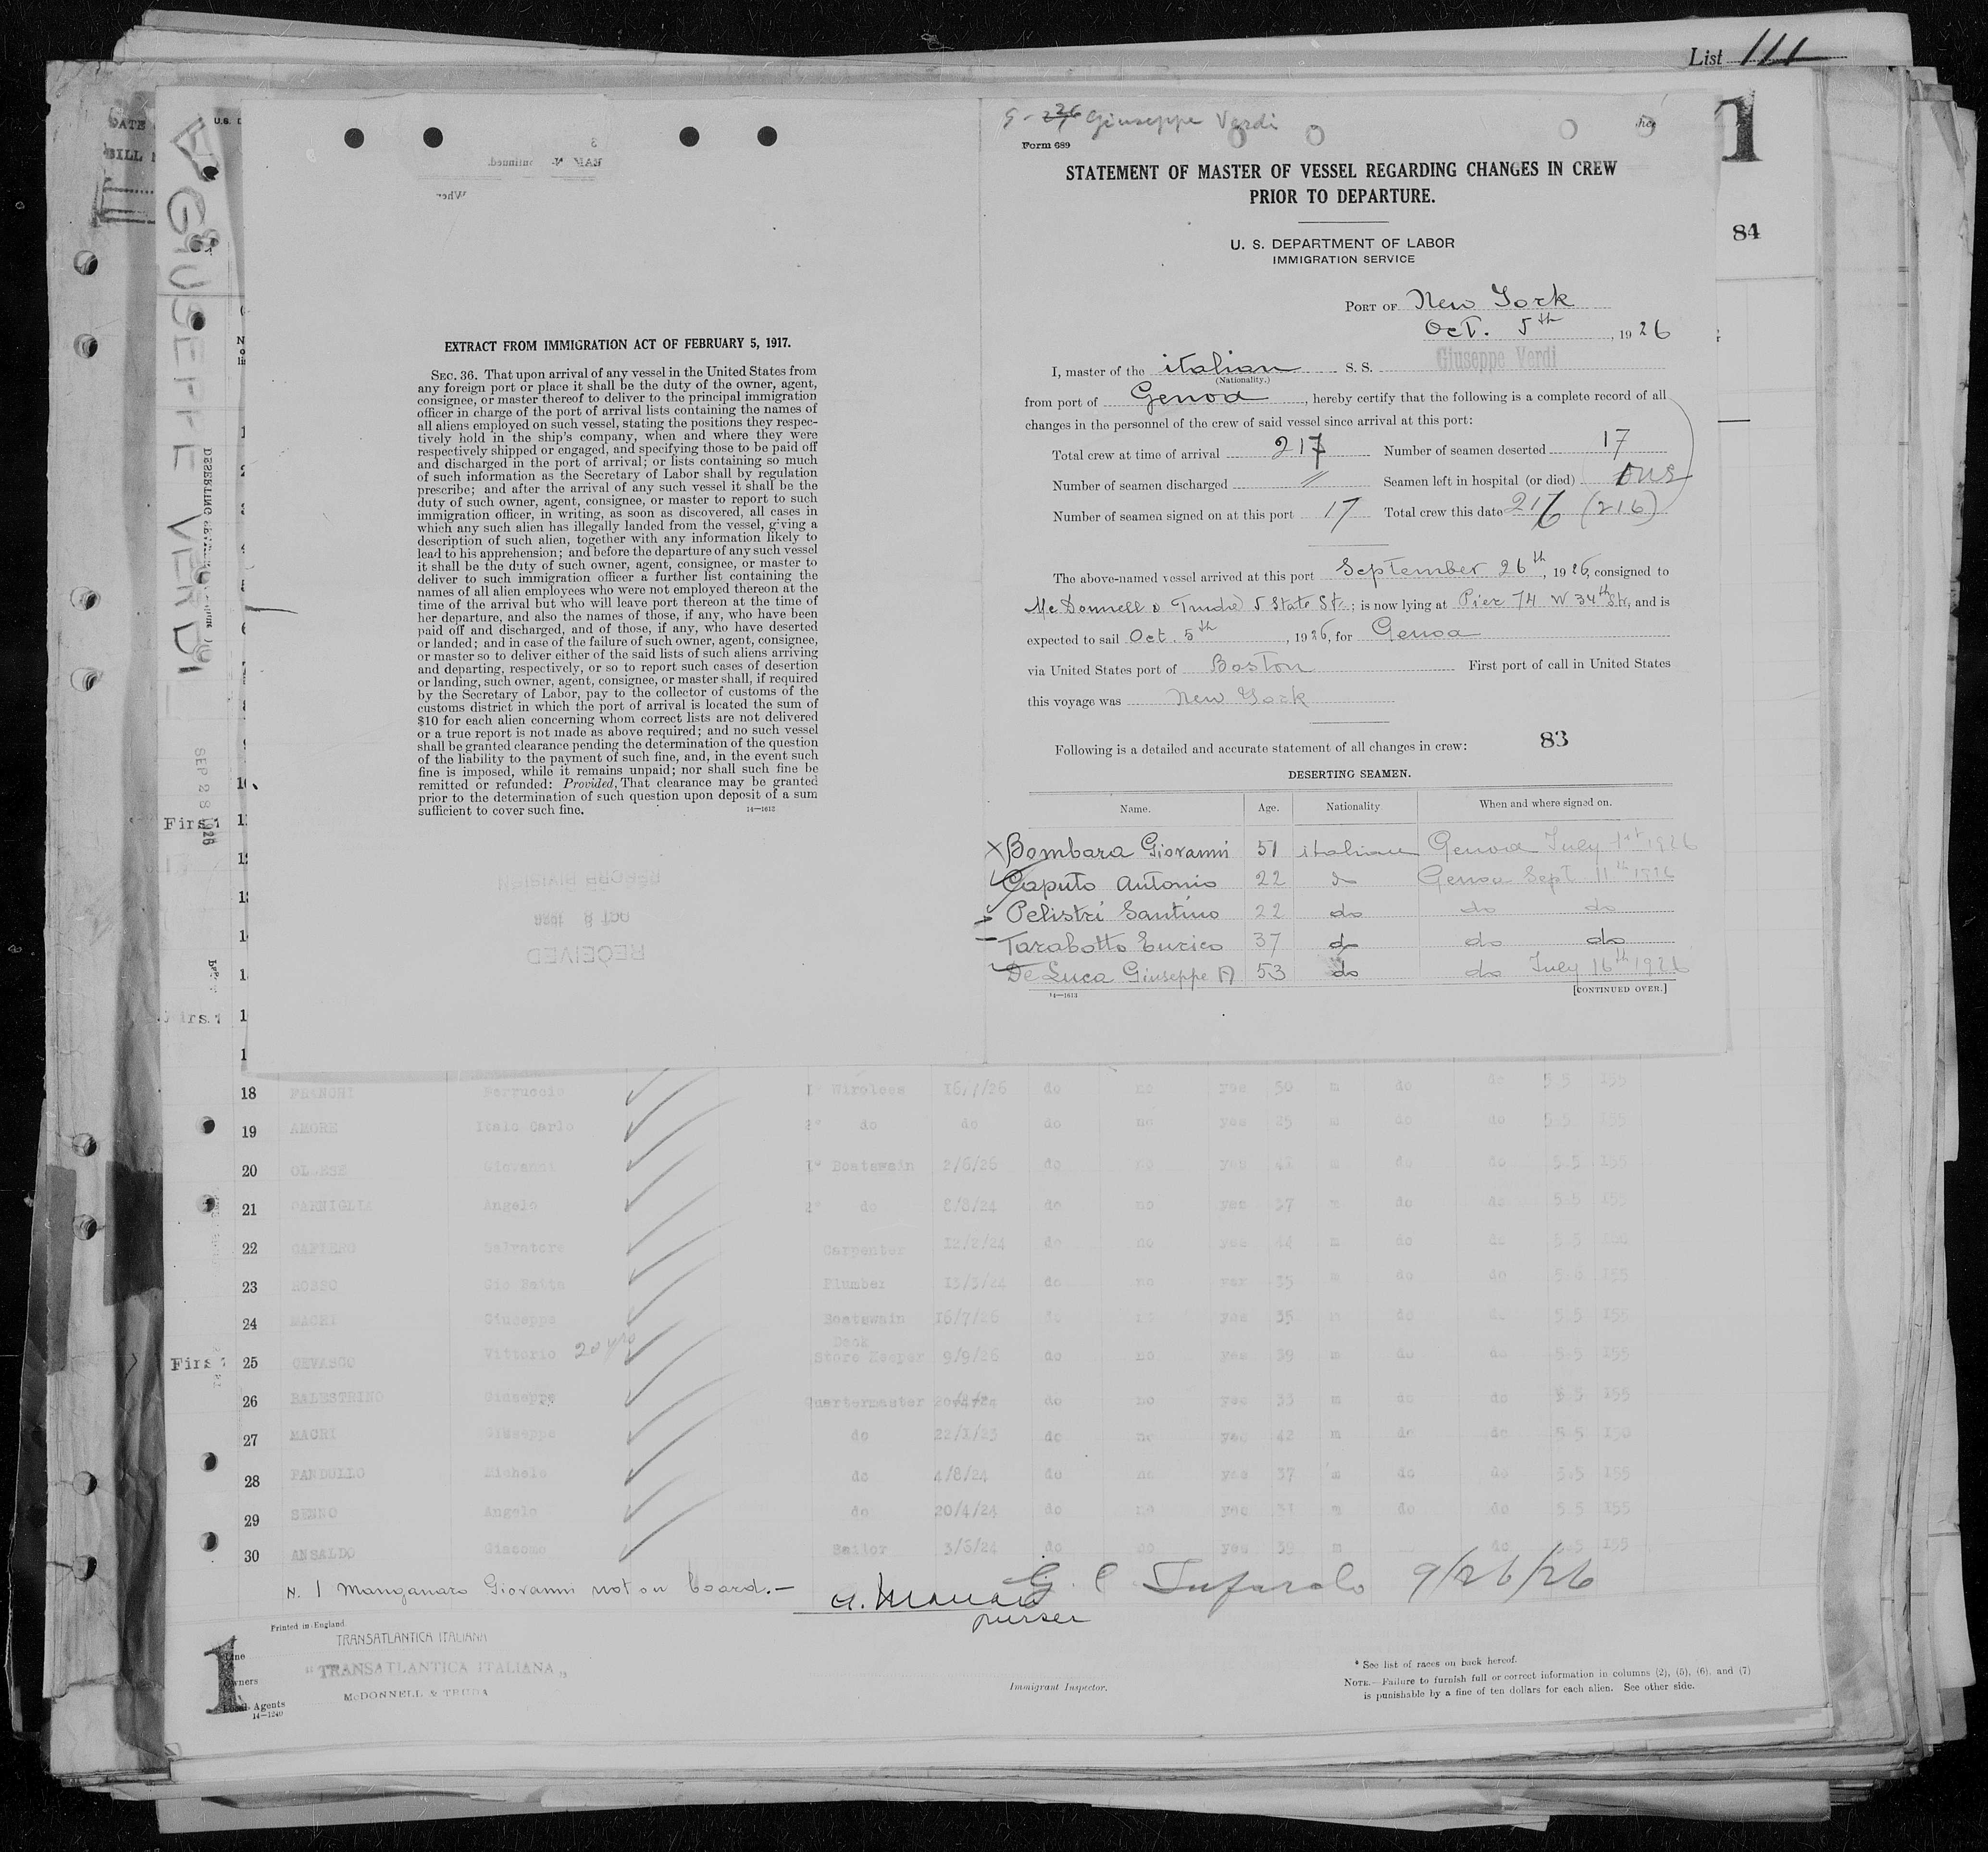 List 111
1
84
DATE
BILL
U.S.
GIUSEPPE VERDI
SEP 28 1926
First
First
EXTRACT FROM IMMIGRATION ACT OF FEBRUARY 5, 1917.
SEC. 36. That upon arrival of any vessel in the United States from
any foreign port or place it shall be the duty of the owner, agent,
consignee, or master thereof to deliver to the principal immigration
officer in charge of the port of arrival lists containing the names of
all aliens employed on such vessel, stating the positions they respec-
tively hold in the ship's company, when and where they were
respectively shipped or engaged, and specifying those to be paid off
and discharged in the port of arrival; or lists containing so much
of such information as the Secretary of Labor shall by regulation
prescribe; and after the arrival of any such vessel it shall be the
duty of such owner, agent, consignee, or master to report to such
immigration officer, in writing, as soon as discovered, all cases in
which any such alien has illegally landed from the vessel, giving a
description of such alien, together with any information likely to
lead to his apprehension; and before the departure of any such vessel
it shall be the duty of such owner, agent, consignee, or master to
deliver to such immigration officer a further list containing the
names of all alien employees who were not employed thereon at the
time of the arrival but who will leave port thereon at the time of
her departure, and also the names of those, if any, who have been
paid off and discharged, and of those, if any, who have deserted
or landed; and in case of the failure of such owner, agent, consignee,
or master so to deliver either of the said lists of such aliens arriving
and departing, respectively, or so to report such cases of desertion
or landing, such owner, agent, consignee, or master shall, if required
by the Secretary of Labor, pay to the collector of customs of the
customs district in which the port of arrival is located the sum of
$10 for each alien concerning whom correct lists are not delivered
or a true report is not made as above required; and no such vessel
shall be granted clearance pending the determination of the question
of the liability to the payment of such fine, and, in the event such
fine is imposed, while it remains unpaid; nor shall such fine be
remitted or refunded: Provided, That clearance may be granted
prior to the determination of such question upon deposit of a sum
sufficient to cover such fine. 14—1613
RECORD DIVISION
OCT 8 1926
RECEIVED
Giuseppe Verdi
Form 689
STATEMENT OF MASTER OF VESSEL REGARDING CHANGES IN CREW
PRIOR TO DEPARTURE.
U. S. DEPARTMENT OF LABOR
IMMIGRATION SERVICE
PORT OF New York
Oct. 5th, 1926
I, master of the italian S. S. Giuseppe Verdi
(Nationality.)
from port of Genoa, hereby certify that the following is a complete record of all
changes in the personnel of the crew of said vessel since arrival at this port:
Total crew at time of arrival 217 Number of seamen deserted 17
Number of seamen discharged // Seamen left in hospital (or died) one
Number of seamen signed on at this port 17 Total crew this date 216 (216)
The above-named vessel arrived at this port September 26th, 1926, consigned to
Mc Donnell & Truda 5 State St.; is now lying at Pier 74 W 34th Str, and is
expected to sail Oct. 5th, 1926, for Genoa
via United States port of Boston First port of call in United States
this voyage was New York
Following is a detailed and accurate statement of all changes in crew: 83
DESERTING SEAMEN.
Name. Age. Nationality When and where signed on.
Bombara Giovanni 51 italian Genoa July 1st 1926
Caputo Antonio 22 do Genoa Sept 11th 1926
Pelistri Santino 22 do do do
Tarabotto Enrico 37 do do do
De Luca Giuseppe A 53 do do July 16th 1926
14—1613 [CONTINUED OVER.]
18 FRANCHI Ferruccio 1° Wireless 16/7/26 do no yes 50 m do do 5 5 155
19 AMORE Italo Carlo 2° do do do no yes 25 m do do 5 5 155
20 Giovanni 1° Boatswain 2/6/26 do no yes 41 m do do 5.5 155
21 CARNIGLIA Angelo 2° do 8/8/24 do no yes 37 m do do 5 5 155
22 CAFIERO Salvatore Carpenter 12/2/24 do no yes 44 m do do 5 5
23 ROSSO Gio Batta Plumber 13/3/24 do no yes 35 m do do 155
24 MACRI Giuseppe Boatswain 16/7/26 do no yes 35 m do do 5.5 155
Deck
First 25 CEVASCO Vittorio Store Keeper 9/9/26 do no yes 39 m do do 5.5 155
26 BALESTRINO Giuseppe Quartermaster do no yes 33 m do do 5 5 155
27 MACRI Giuseppe do 22/1/23 do no yes 42 m do do 5 5 150
28 PANDULLO Michele do 4/8/24 do no yes 37 m do do 5.5 155
29 SENNO Angelo do 20/4/24 do no yes 31 m do do 5 5 155
30 ANSALDO Giacomo Sailor 3/6/24 do do yes 39 m do 5.5 155
N. 1 Manganaro Giovanni not on board.—
purser
9/26/26
Printed in England
1
TRANSATLANTICA ITALIANA
Line
"TRANSATLANTICA ITALIANA"
Owners
McDONNELL & TRUDA
Local Agents
14—1240
Immigrant Inspector.
* See list of races on back hereof.
NOTE.—Failure to furnish full or correct information in columns (2), (5), (6), and (7)
is punishable by a fine of ten dollars for each alien. See other side.